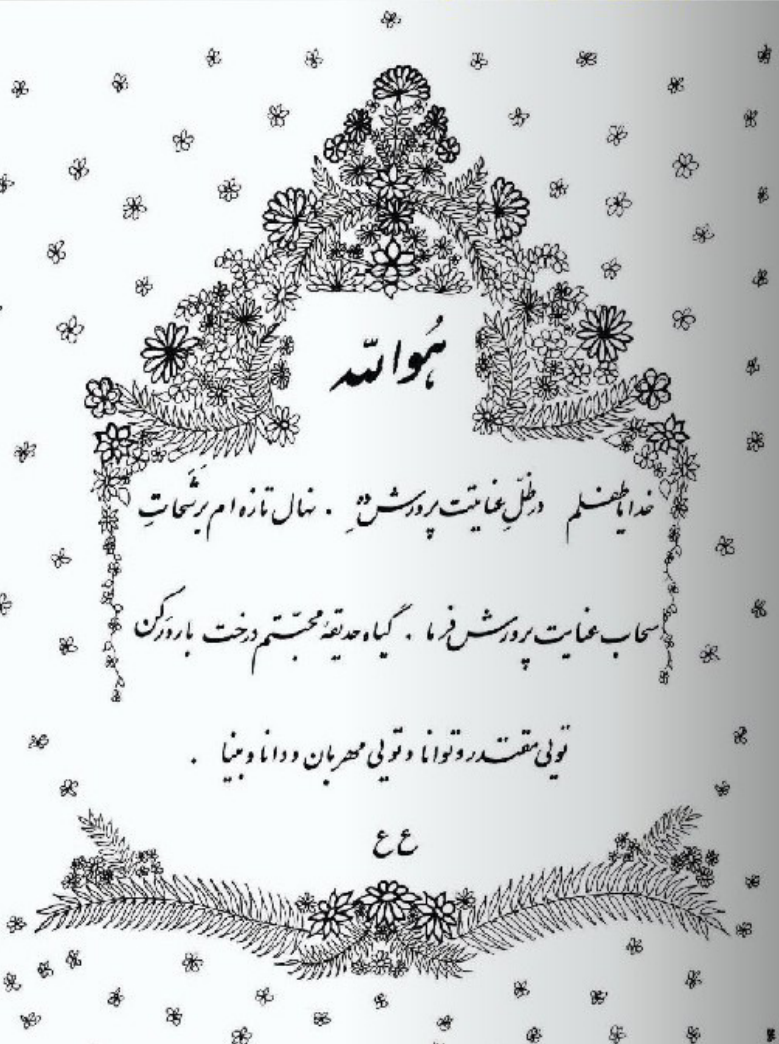 هُوالله
خدایا طفلم در ظلِّ عنایتت پرورش دِه . نهال تازه ام بِرَشَحاتِ
سحاب عنایت پرورش فرما . گیاه حدیقهٔ محبّتم درخت بارور کن
توئی مقتدر و توانا و توئی مهربان و دانا و بینا .
ع ع